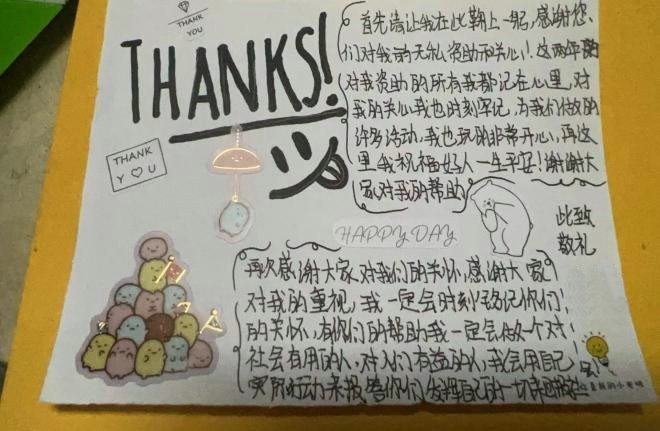 THANK
YOU
THANKS!
首先请让我在此鞠上一躬,感谢您
们对我的无私资助和关心!这两年的
对我资助的所有我都记在心里,对
我的关心我也时刻牢记,为我们做的
许多活动,我也玩的非常开心,再这
里我祝福好人一生平安!谢谢大
家对我的帮助
THANK
Y U
HAPPY DAY
此致
敬礼
再次感谢大家对我们的关怀,感谢大家
对我的重视,我一定会时刻铭记你们
的关怀,有你们的帮助我一定会做一个对
社会有用的人,对人们有益的人,我会用自己
实际行动来报答你们,发挥自己的一切来回报社